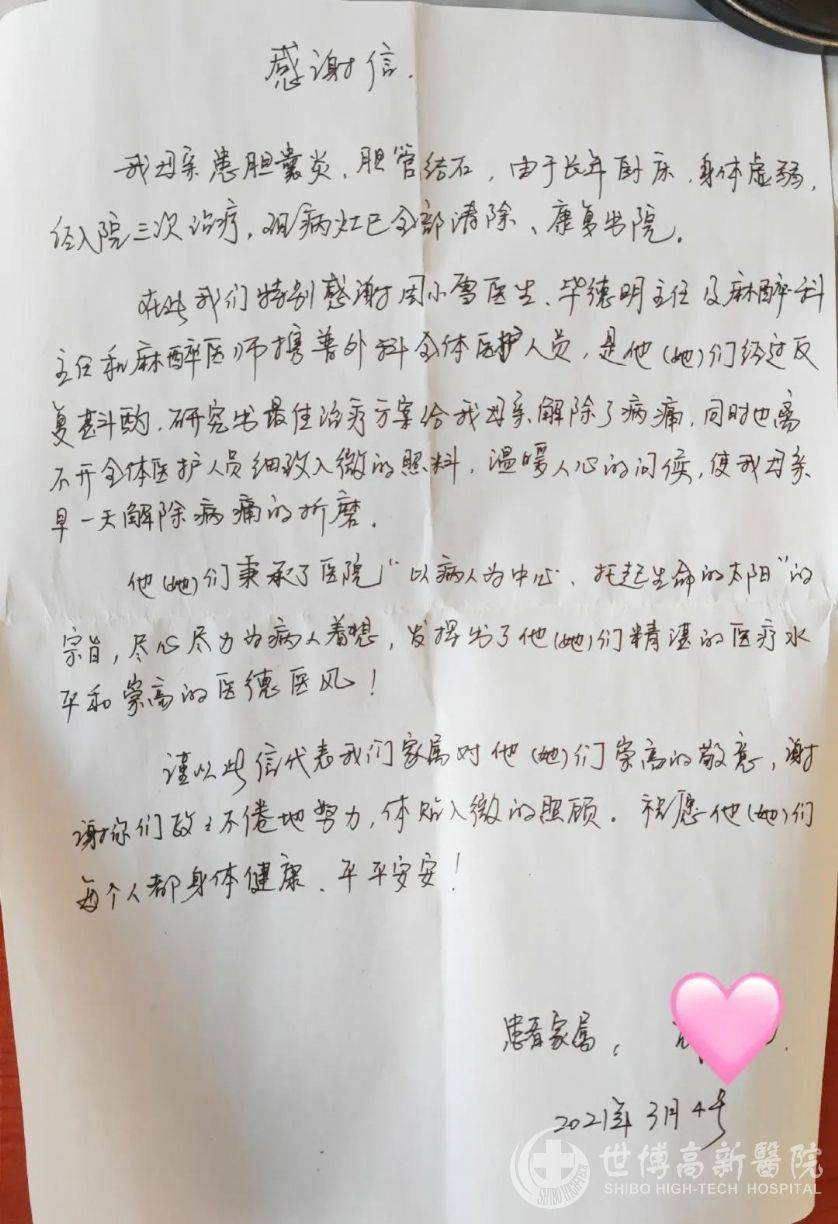 感谢信.
我母亲患胆囊炎、胆管结石，由于长年卧床，身体虚弱，
经入院三次治疗，现病灶已全部清除、康复出院。
在此我们特别感谢周小雪医生、毕德明主任及麻醉科
主任和麻醉医师携普外科全体医护人员，是他(她)们经过反
复斟酌，研究出最佳治疗方案给我母亲解除了病痛，同时也离
不开全体医护人员细致入微的照料，温暖人心的问候，使我母亲
早一天解除病痛的折磨。
他(她)们秉承了医院“以病人为中心、托起生命的太阳”的
宗旨，尽心尽力为病人着想，发挥出了他(她)们精湛的医疗水
平和崇高的医德医风！
谨以此信代表我们家属对他(她)们崇高的敬意，谢
谢你们孜孜不倦地努力，体贴入微的照顾。祝愿他(她)们
每个人都身体健康、平平安安！
患者家属：
2021年3月4号
世博高新醫院
SHIBO HIGH-TECH HOSPITAL